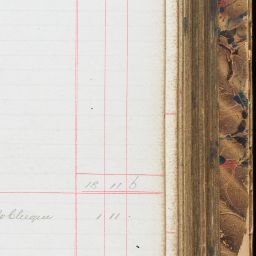 18 11 6
Cheque 1 11